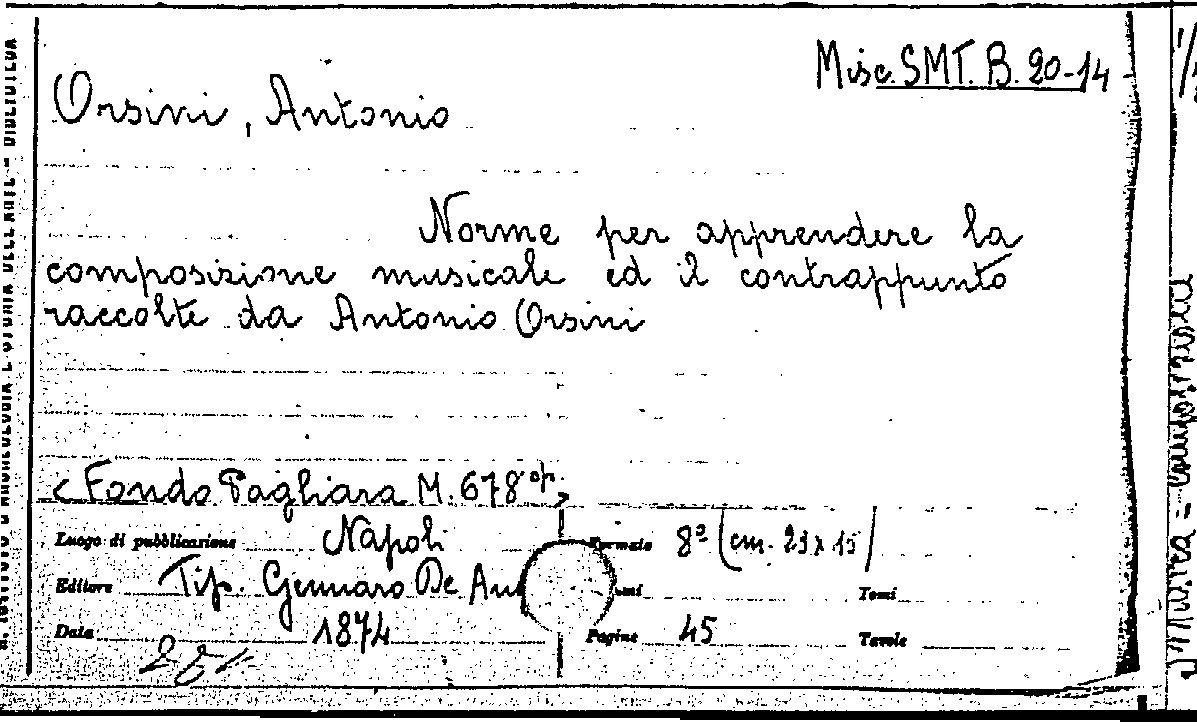 Misc. SMT. B. 20-14
Orsini, Antonio
Norme per apprendere la
composizione musicale ed il contrappunto
raccolte da Antonio Orsini
< Fondo Pagliara M. 678 op. >
Luogo di pubblicazione Napoli Formato 8º (cm. 23 x 15)
Editore Tip. Gennaro De An Tomi
Data 1874 Pagine 45 Tavole
R. ISTITUTO D'ARCHEOLOGIA E STORIA DELL'ARTE - BIBLIOTECA